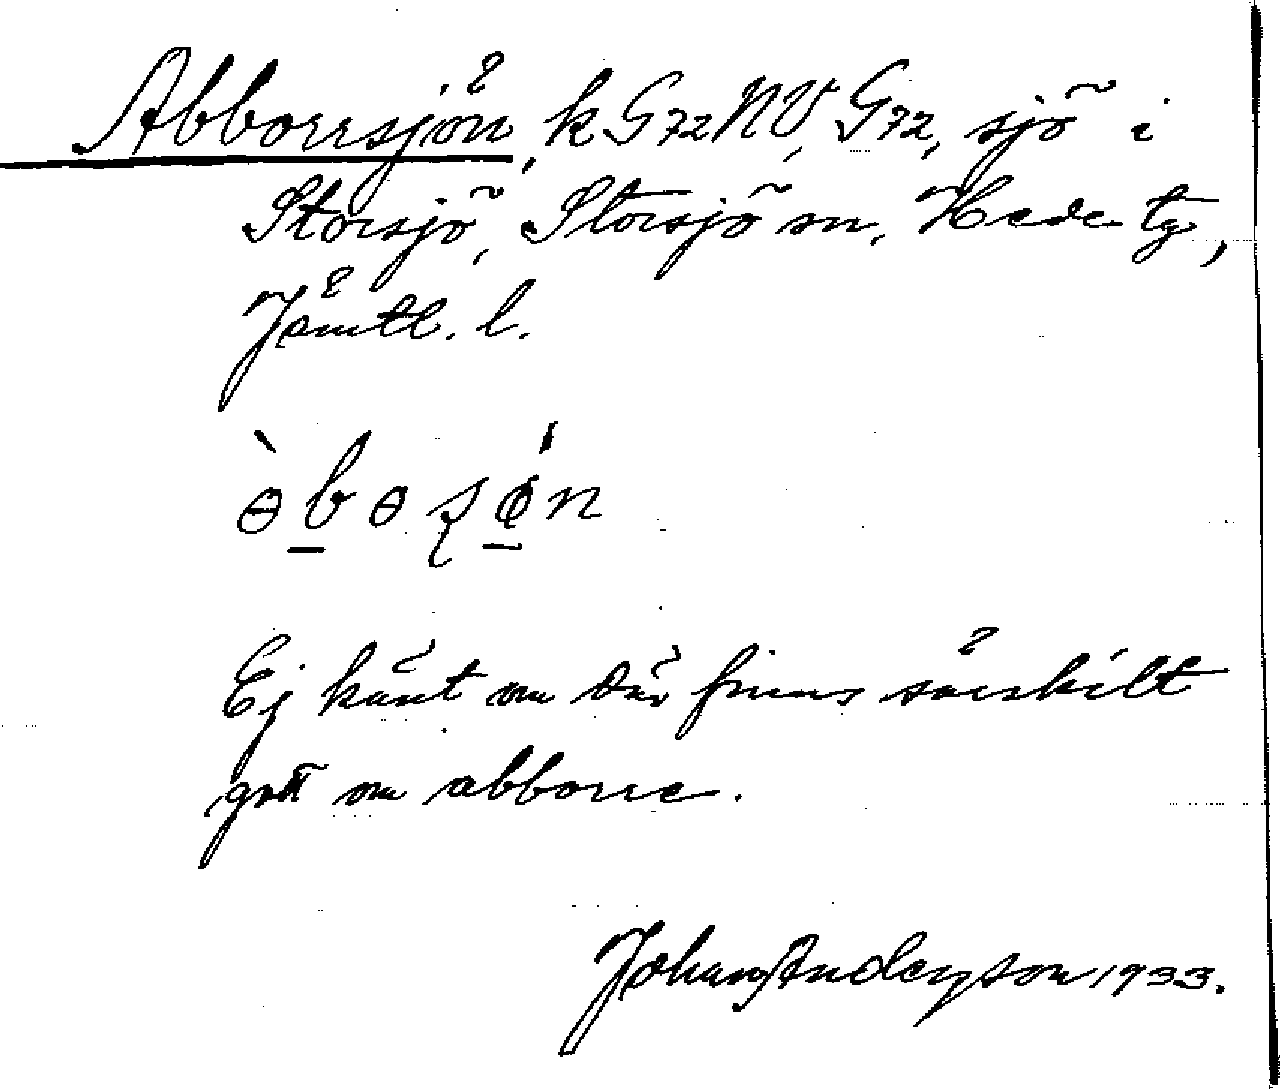 Abborrsjön, k G72NV, G72, sjö i
Storsjö, Storsjö sn, Hede tg,
Jämtl. l.
ɵ̀b̲ɵʂǿ̲n
Ej känt om där finns särskilt
gott om abborre.
Johan Anderson 1933.